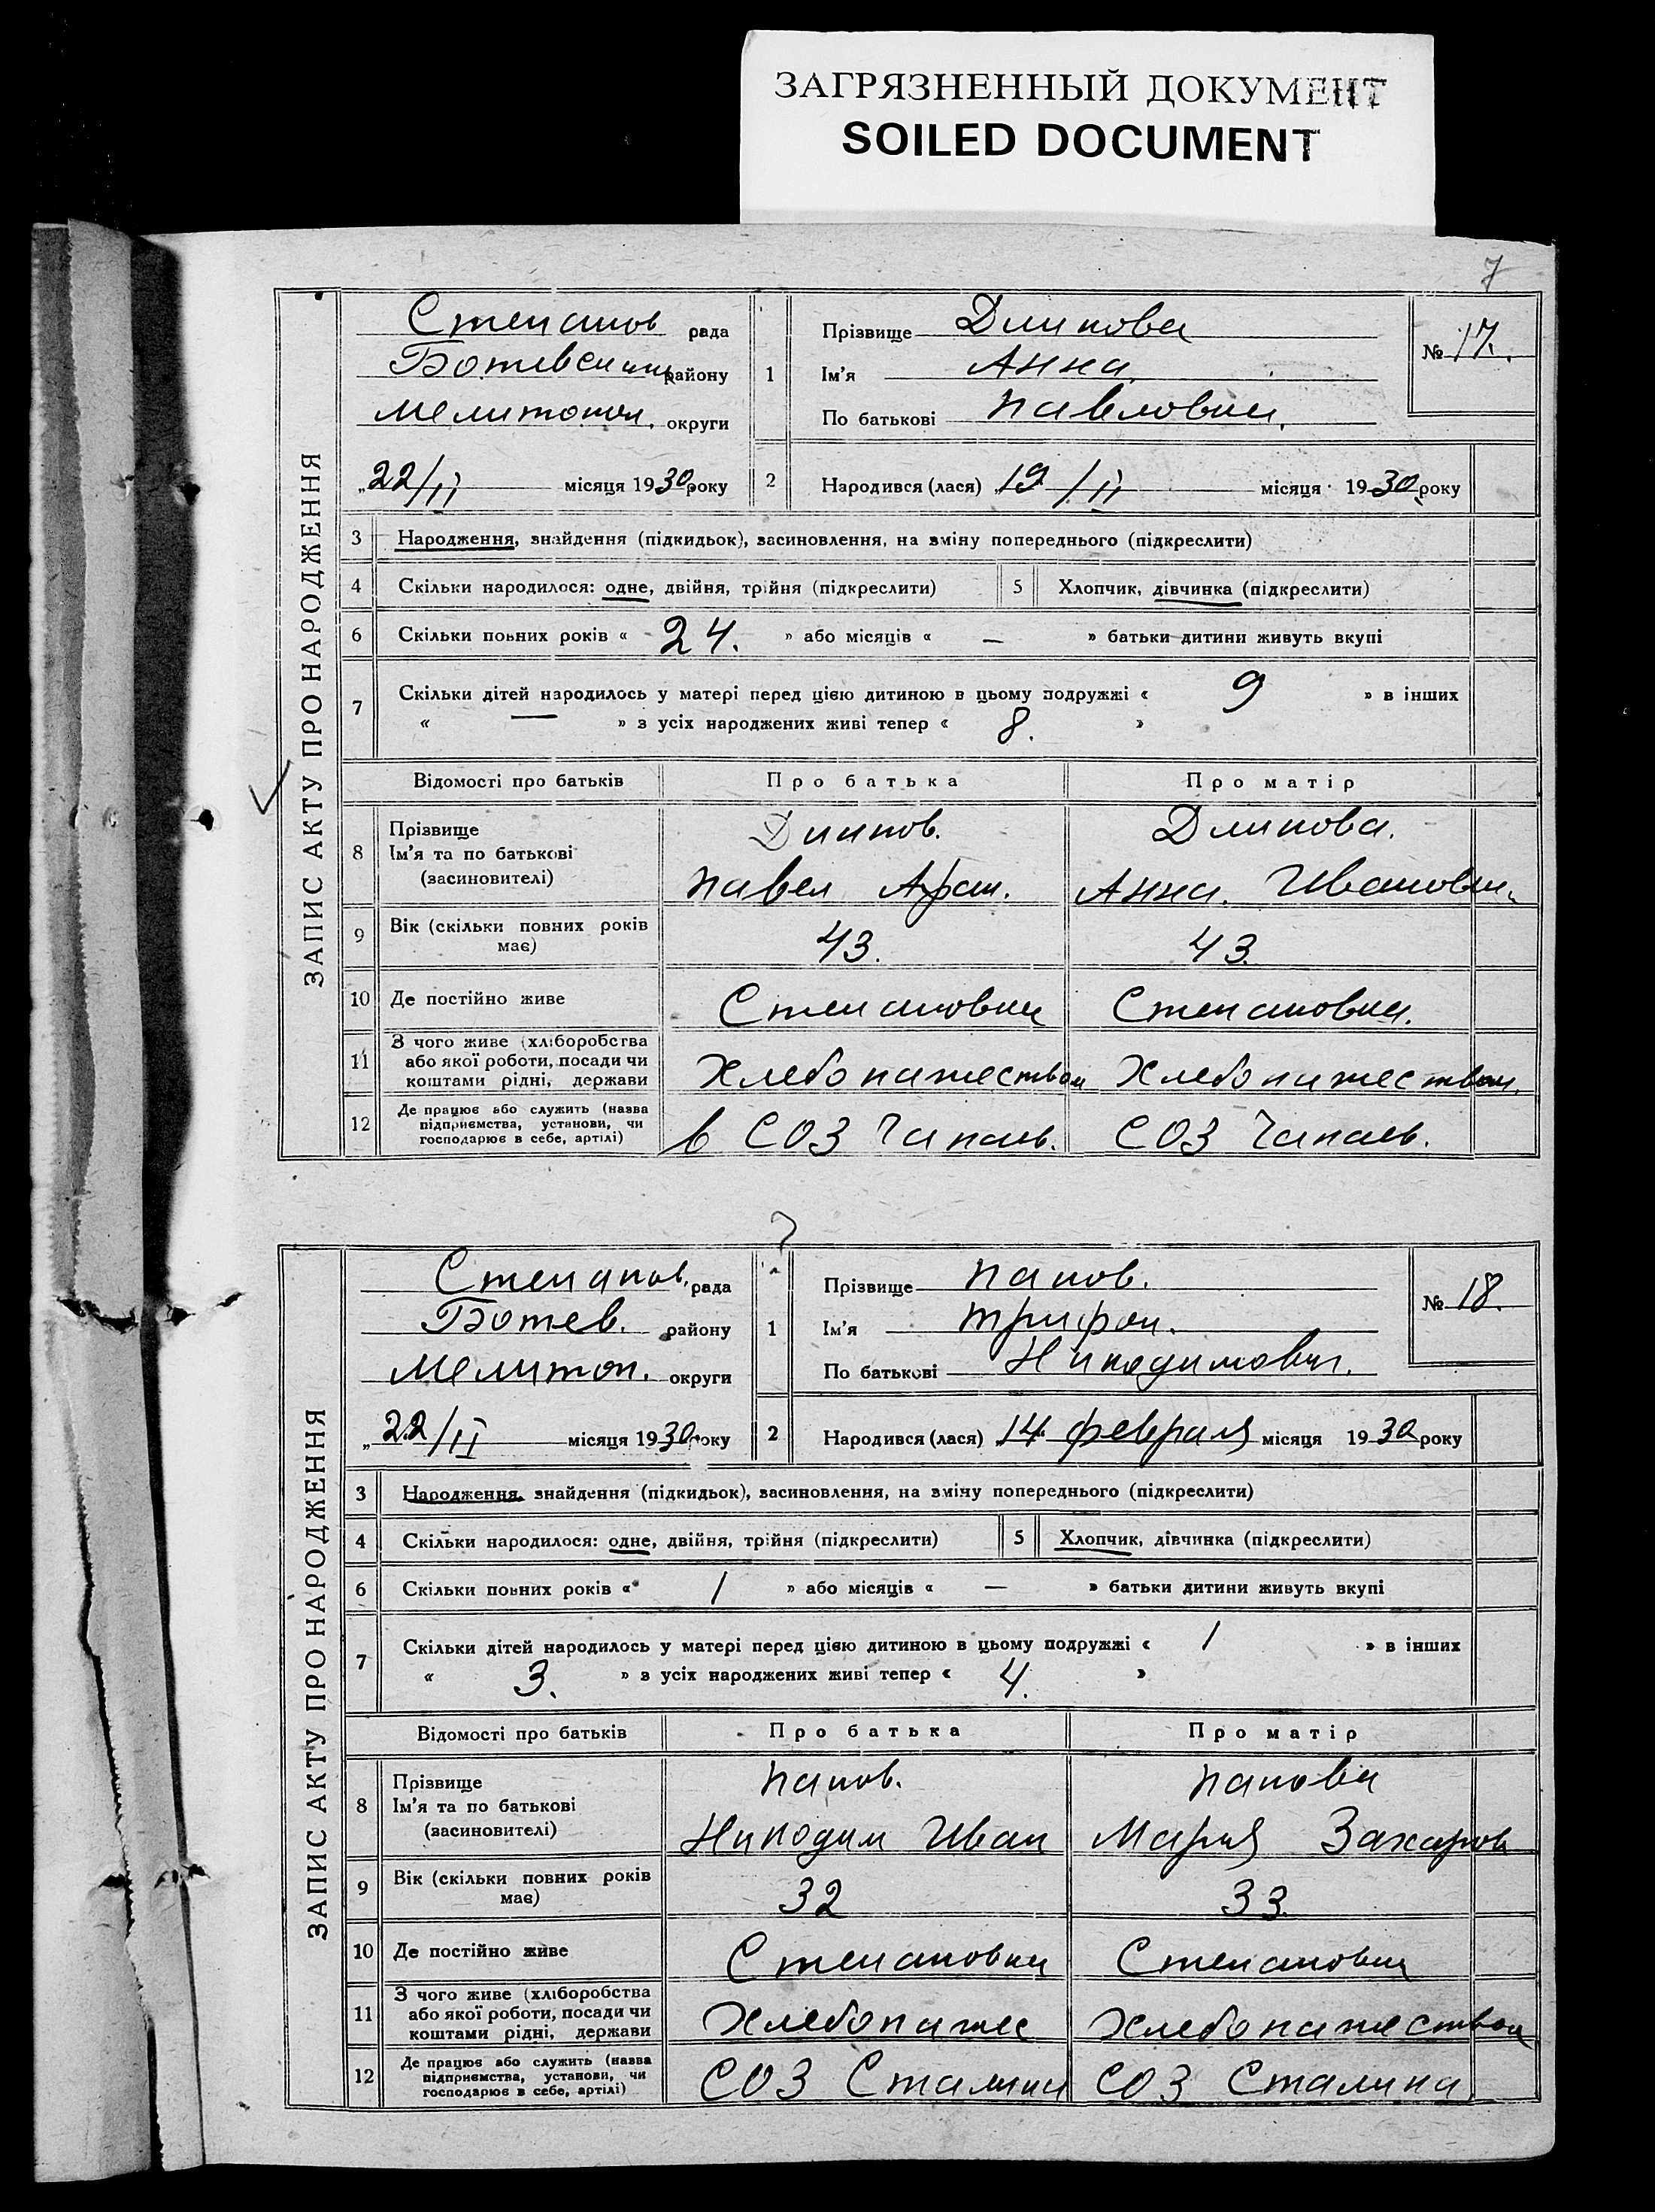 ЗАГРЯЗНЕННЫЙ ДОКУМЕНТ
SOILED DOCUMENT
7
ЗАПИС АКТУ ПРО НАРОДЖЕННЯ
Степанов рада
района
Мелитопол. округи
„22/II місяця 1930 року
1 Прізвище
Ім'я Анна
По батькові Павловна.
№ 17.
2 Народився (лася) 19/II місяця 1930 року
3 Народження, знайдення (підкидьок), засиновлення, на зміну попереднього (підкреслити)
4 Скільки народилося: одне, двійня, трійня (підкреслити) 5 Хлопчик, дівчинка (підкреслити)
6 Скільки повних років « 24. » або місяців « — » батьки дитини живуть вкупі
7 Скільки дітей народилось у матері перед цією дитиною в цьому подружжі « 9 » в інших
« — » з усіх народжених живі тепер « 8. »
Відомості про батьків Про батька Про матір
8 Прізвище
Ім'я та по батькові
(засиновителі)
Павел Анна. Ивановна
9 Вік (скільки повних років має) 43. 43.
10 Де постійно живе Степановка Степановка.
11 З чого живе (хліборобства
або якої роботи, посади чи
коштами рідні, держави
Хлебопашеством Хлебопашеством.
12 Де працює або служить (назва
підприємства, установи, чи
господарює в себе, артілі)
в СОЗ Чапаев. СОЗ Чапаев.
ЗАПИС АКТУ ПРО НАРОДЖЕННЯ
Степанов. рада
Ботев. району
Мелитоп. округи
„22/II місяця 1930 року
1 Прізвище Папов.
Ім'я Трифон.
По батькові Никодимович.
№ 18.
2 Народився (лася) 14 февраля місяця 1930 року
3 Народження, знайдення (підкидьок), засиновлення, на зміну попереднього (підкреслити)
4 Скільки народилося: одне, двійня, трійня (підкреслити) 5 Хлопчик, дівчинка (підкреслити)
6 Скільки повних років « 1 » або місяців « — » батьки дитини живуть вкупі
7 Скільки дітей народилось у матері перед цією дитиною в цьому подружжі « 1 » в інших
« 3. » з усіх народжених живі тепер « 4. »
Відомості про батьків Про батька Про матір
8 Прізвище
Ім'я та по батькові
(засиновителі)
Папов. Папова
Никодим Иван Мария Захаров
9 Вік (скільки повних років має) 32 33.
10 Де постійно живе Степановка Степановка
11 З чого живе (хліборобства
або якої роботи, посади чи
коштами рідні, держави
Хлебопашес Хлебопашеством
12 Де працює або служить (назва
підприємства, установи, чи
господарює в себе, артілі)
СОЗ Сталина СОЗ Сталина.